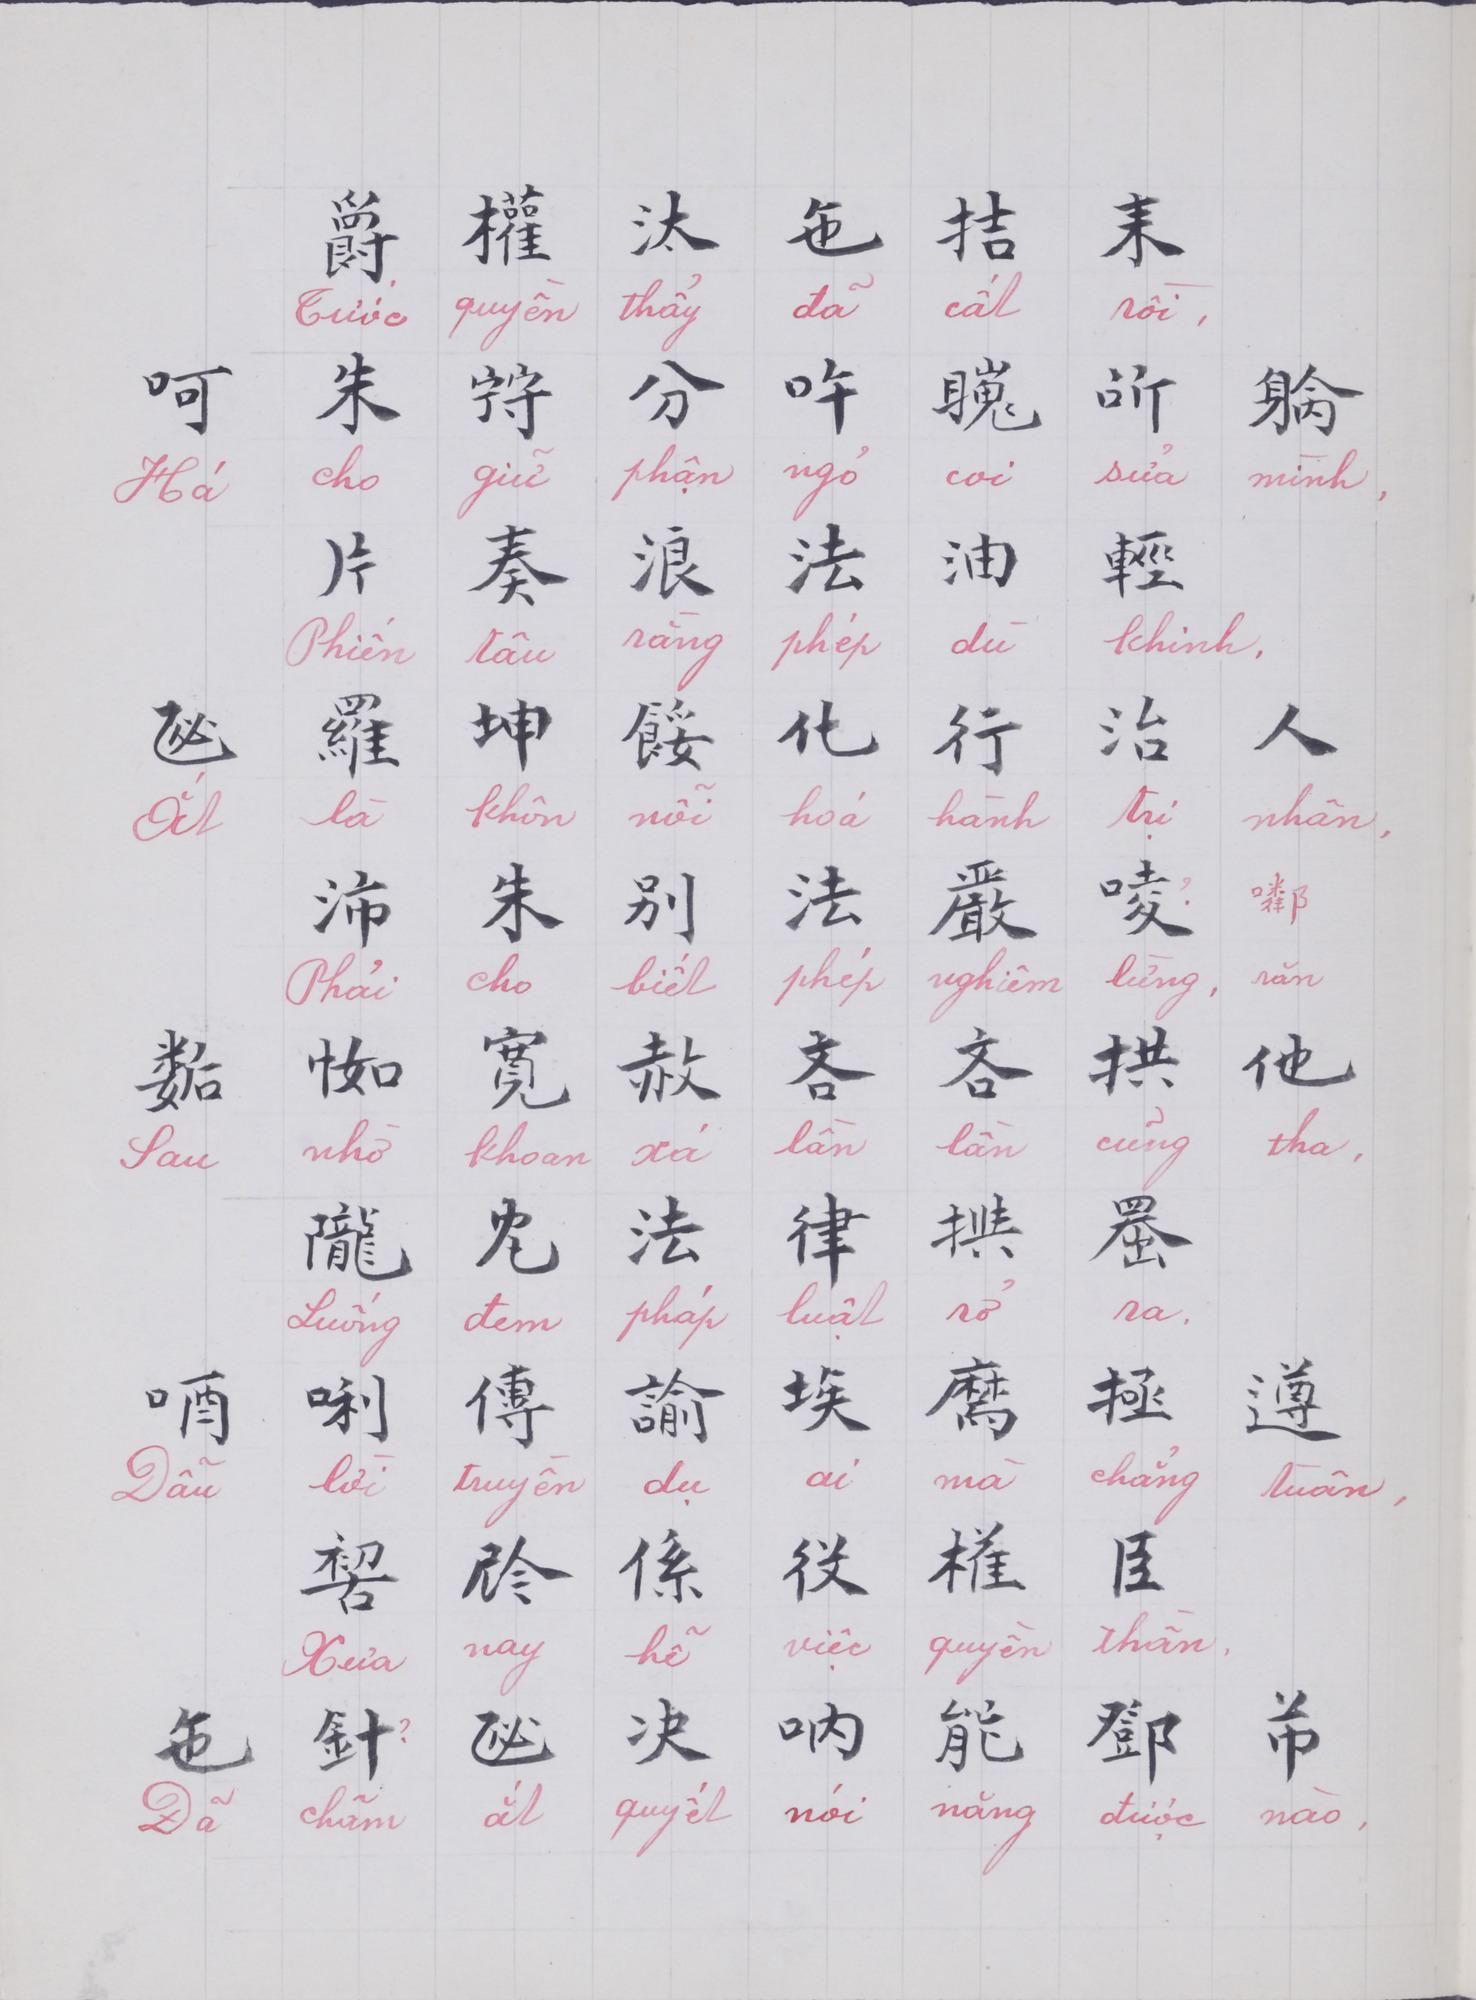 爵 權 汰 㐌 拮 耒
Tước quyền thẩy đã cất rồi,
呵 朱 㝋 分 吘 𥊚 𫝙 𨉓
Há cho giữ phận ngỏ coi sửa mình,
片 奏 浪 法 油 輕
Phiến tâu rằng phép dù khinh,
𠮿 羅 坤 餒 化 行 治 人
Ắt là khôn nỗi hoá hành trị nhân,
沛 朱 别 法 嚴 唛 ? 𠿲
Phải cho biết phép nghiêm lừng, răn
𢖕 㤖 寛 赦 吝 吝 拱 他
Sau nhờ khoan xá lần lần cũng tha,
隴 冘 法 律 㨋 𦋦
Luống đem pháp luật rỏ ra.
唒 唎 傳 諭 埃 𢟎 極 遵
Dẫu lời truyền dụ ai mà chẳng tuân,
𠸗 𫢩 係 役 權 臣
Xưa nay hễ việc quyền thần,
㐌 針 ? 𠮿 决 吶 能 鄧 芇
Đã chăm ắt quyết nói năng được nào,